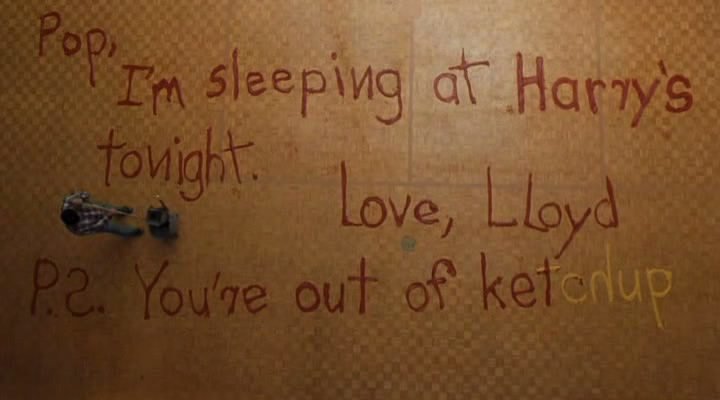 Pop,
I'm sleeping at Harry's
tonight.
Love, Lloyd
P.S. You're out of ketchup